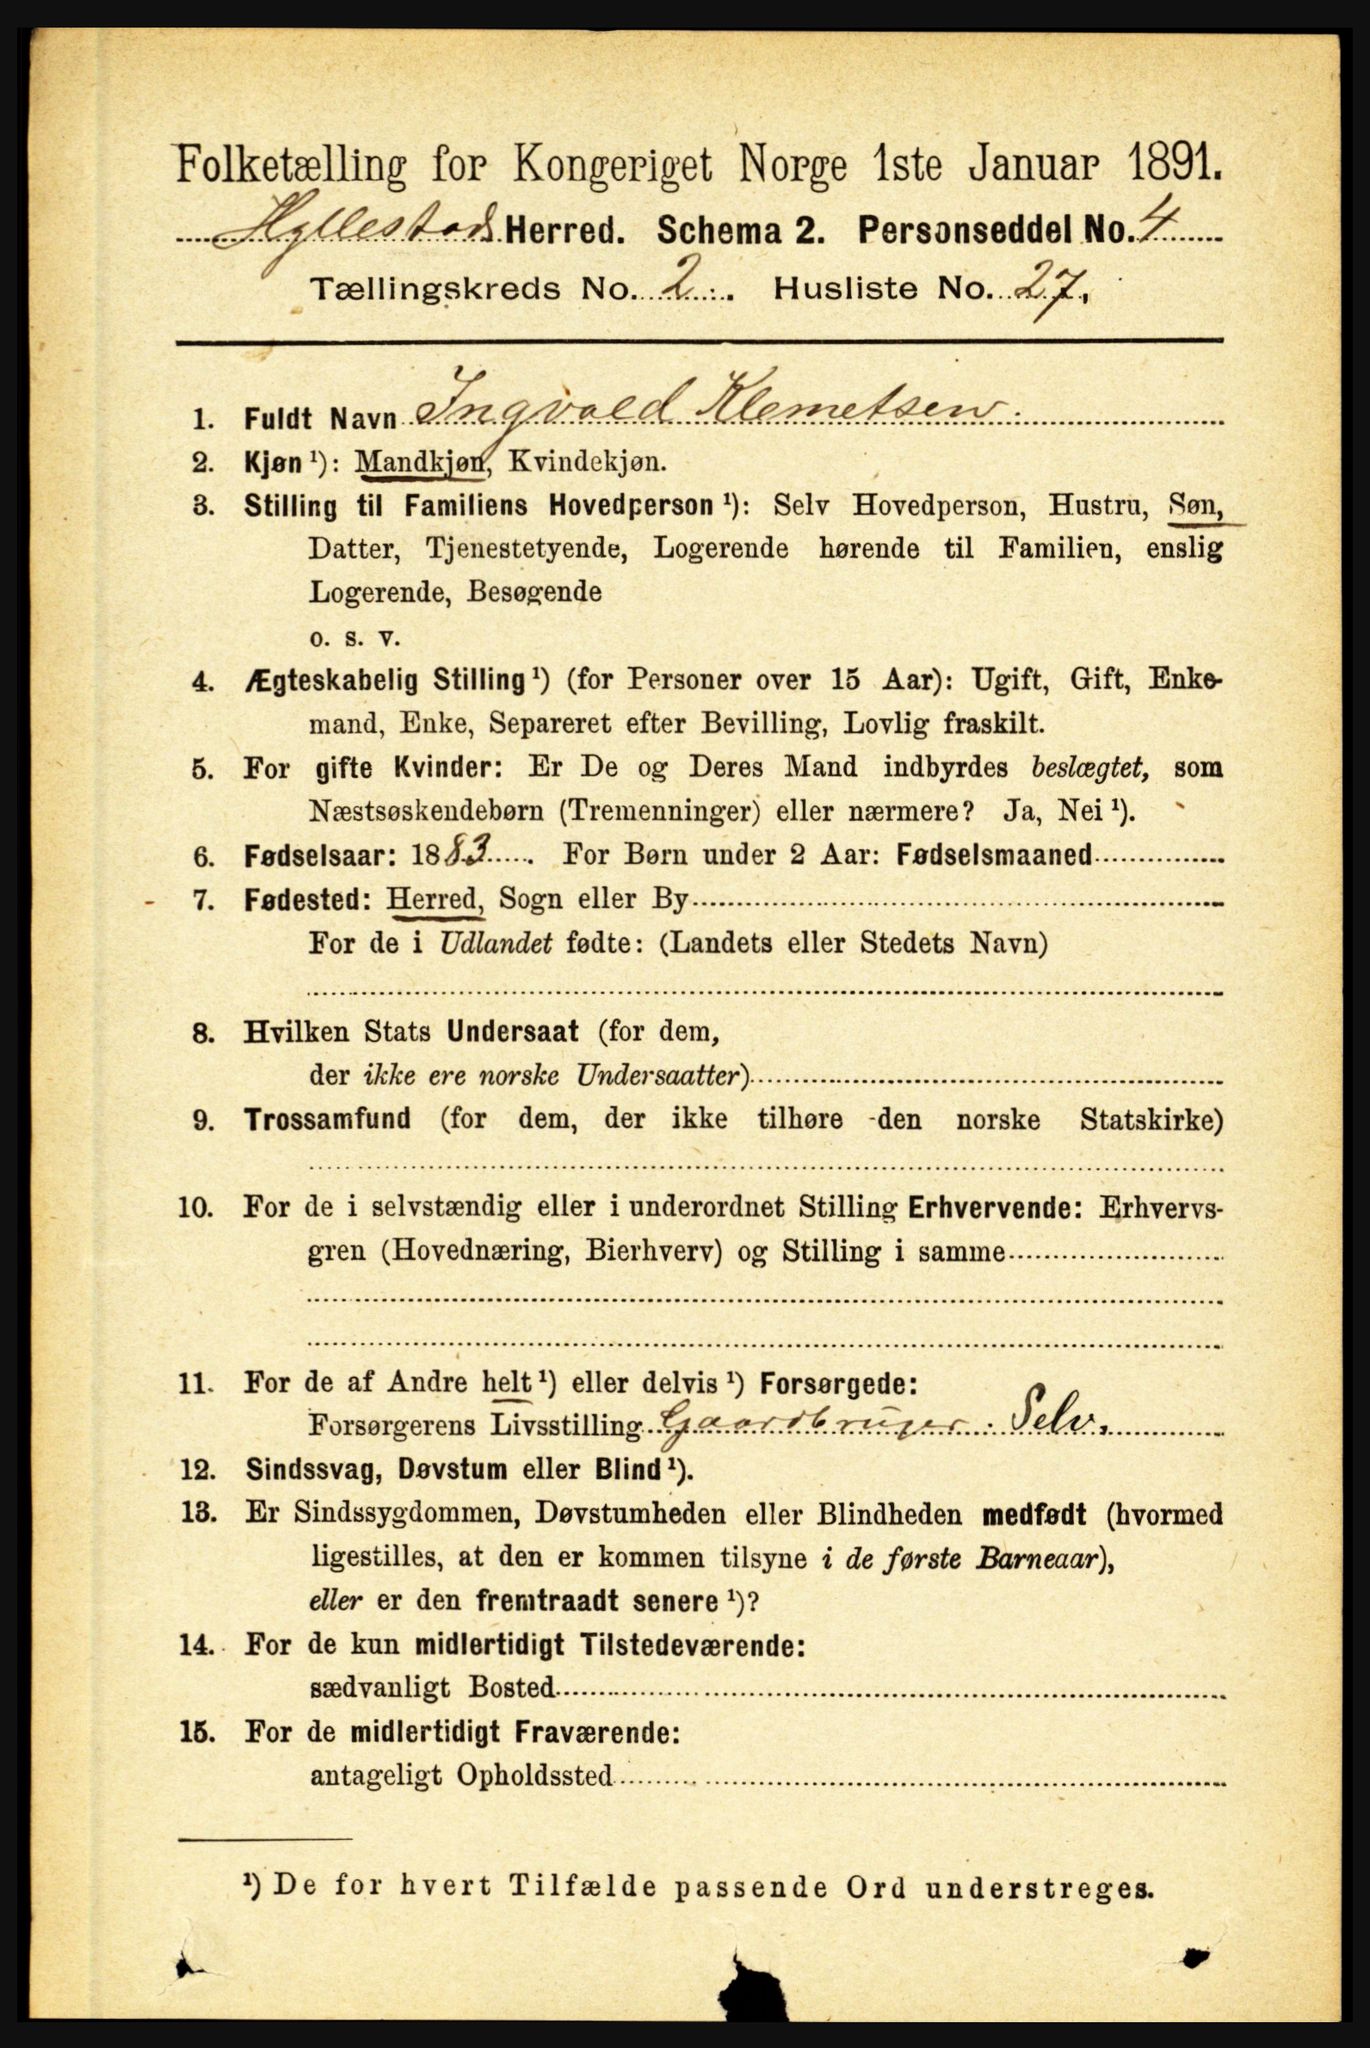 Folketælling for Kongeriget Norge 1ste Januar 1891.
Hyllestads Herred. Schema 2. Personseddel No. 4
Tællingskreds No. 2. Husliste No. 27.
1. Fuldt Navn Ingvald Klemetsen.
2. Kjøn ¹): Mandkjøn, Kvindekjøn.
3. Stilling til Familiens Hovedperson ¹): Selv Hovedperson, Hustru, Søn,
Datter, Tjenestetyende, Logerende hørende til Familien, enslig
Logerende, Besøgende
o. s. v.
4. Ægteskabelig Stilling ¹) (for Personer over 15 Aar): Ugift, Gift, Enke-
mand, Enke, Separeret efter Bevilling, Lovlig fraskilt.
5. For gifte Kvinder: Er De og Deres Mand indbyrdes beslægtet, som
Næstsøskendebørn (Tremenninger) eller nærmere? Ja, Nei ¹).
6. Fødselsaar: 1883. For Børn under 2 Aar: Fødselsmaaned
7. Fødested: Herred, Sogn eller By
For de i Udlandet fødte: (Landets eller Stedets Navn)
8. Hvilken Stats Undersaat (for dem,
der ikke ere norske Undersaatter)
9. Trossamfund (for dem, der ikke tilhøre den norske Statskirke)
10. For de i selvstændig eller i underordnet Stilling Erhvervende: Erhvervs-
gren (Hovednæring, Bierhverv) og Stilling i samme
11. For de af Andre helt ¹) eller delvis ¹) Forsørgede:
Forsørgerens Livsstilling Gaardbruger. Selv.
12. Sindssvag, Døvstum eller Blind ¹).
13. Er Sindssygdommen, Døvstumheden eller Blindheden medfødt (hvormed
ligestilles, at den er kommen tilsyne i de første Barneaar),
eller er den fremtraadt senere ¹)?
14. For de kun midlertidigt Tilstedeværende:
sædvanligt Bosted
15. For de midlertidigt Fraværende:
antageligt Opholdssted
¹) De for hvert Tilfælde passende Ord understreges.